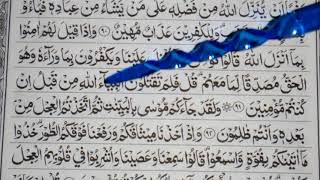 اَنْ يُّنَزِّلَ اللهُ مِنْ فَضْلِهٖ عَلٰى مَنْ يَّشَآءُ مِنْ عِبَادِهٖ
وَلِلْكٰفِرِيْنَ عَذَابٌ مُّهِيْنٌ ﴿٩٠﴾ وَاِذَا قِيْلَ لَهُمْ اٰمِنُوْا
بِمَآ اَنْزَلَ اللهُ قَالُوْا عَلَيْنَا وَيَكْفُرُوْنَ بِمَا وَرَآءَهٗ وَهُوَ
الْحَقُّ مُصَدِّقًا لِّمَا مَعَهُمْ قُلْ فَلِمَ تَقْتُلُوْنَ اَنْۢبِيَآءَ اللهِ مِنْ قَبْلُ اِنْ
كُنْتُمْ مُّؤْمِنِيْنَ ﴿٩١﴾ وَلَقَدْ جَآءَكُمْ مُّوْسٰى بِالْبَيِّنٰتِ ثُمَّ اتَّخَذْتُمُ الْعِجْلَ مِنْۢ
بَعْدِهٖ وَاَنْتُمْ ظٰلِمُوْنَ ﴿٩٢﴾ وَاِذْ اَخَذْنَا مِيْثَاقَكُمْ وَرَفَعْنَا فَوْقَكُمُ الطُّوْرَ خُذُوْا
مَآ اٰتَيْنٰكُمْ بِقُوَّةٍ وَّاسْمَعُوْا قَالُوْا سَمِعْنَا وَعَصَيْنَا وَاُشْرِبُوْا فِيْ قُلُوْبِهِمُ الْعِجْلَ